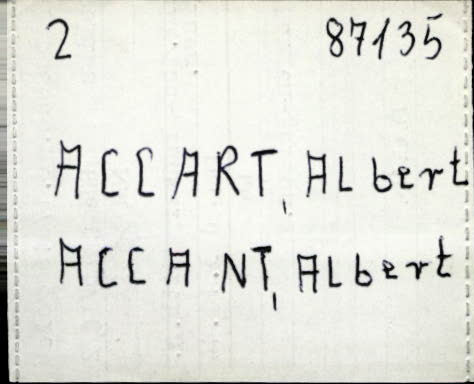 2 87135
ACCART, ALbert
ACCANT, ALbert